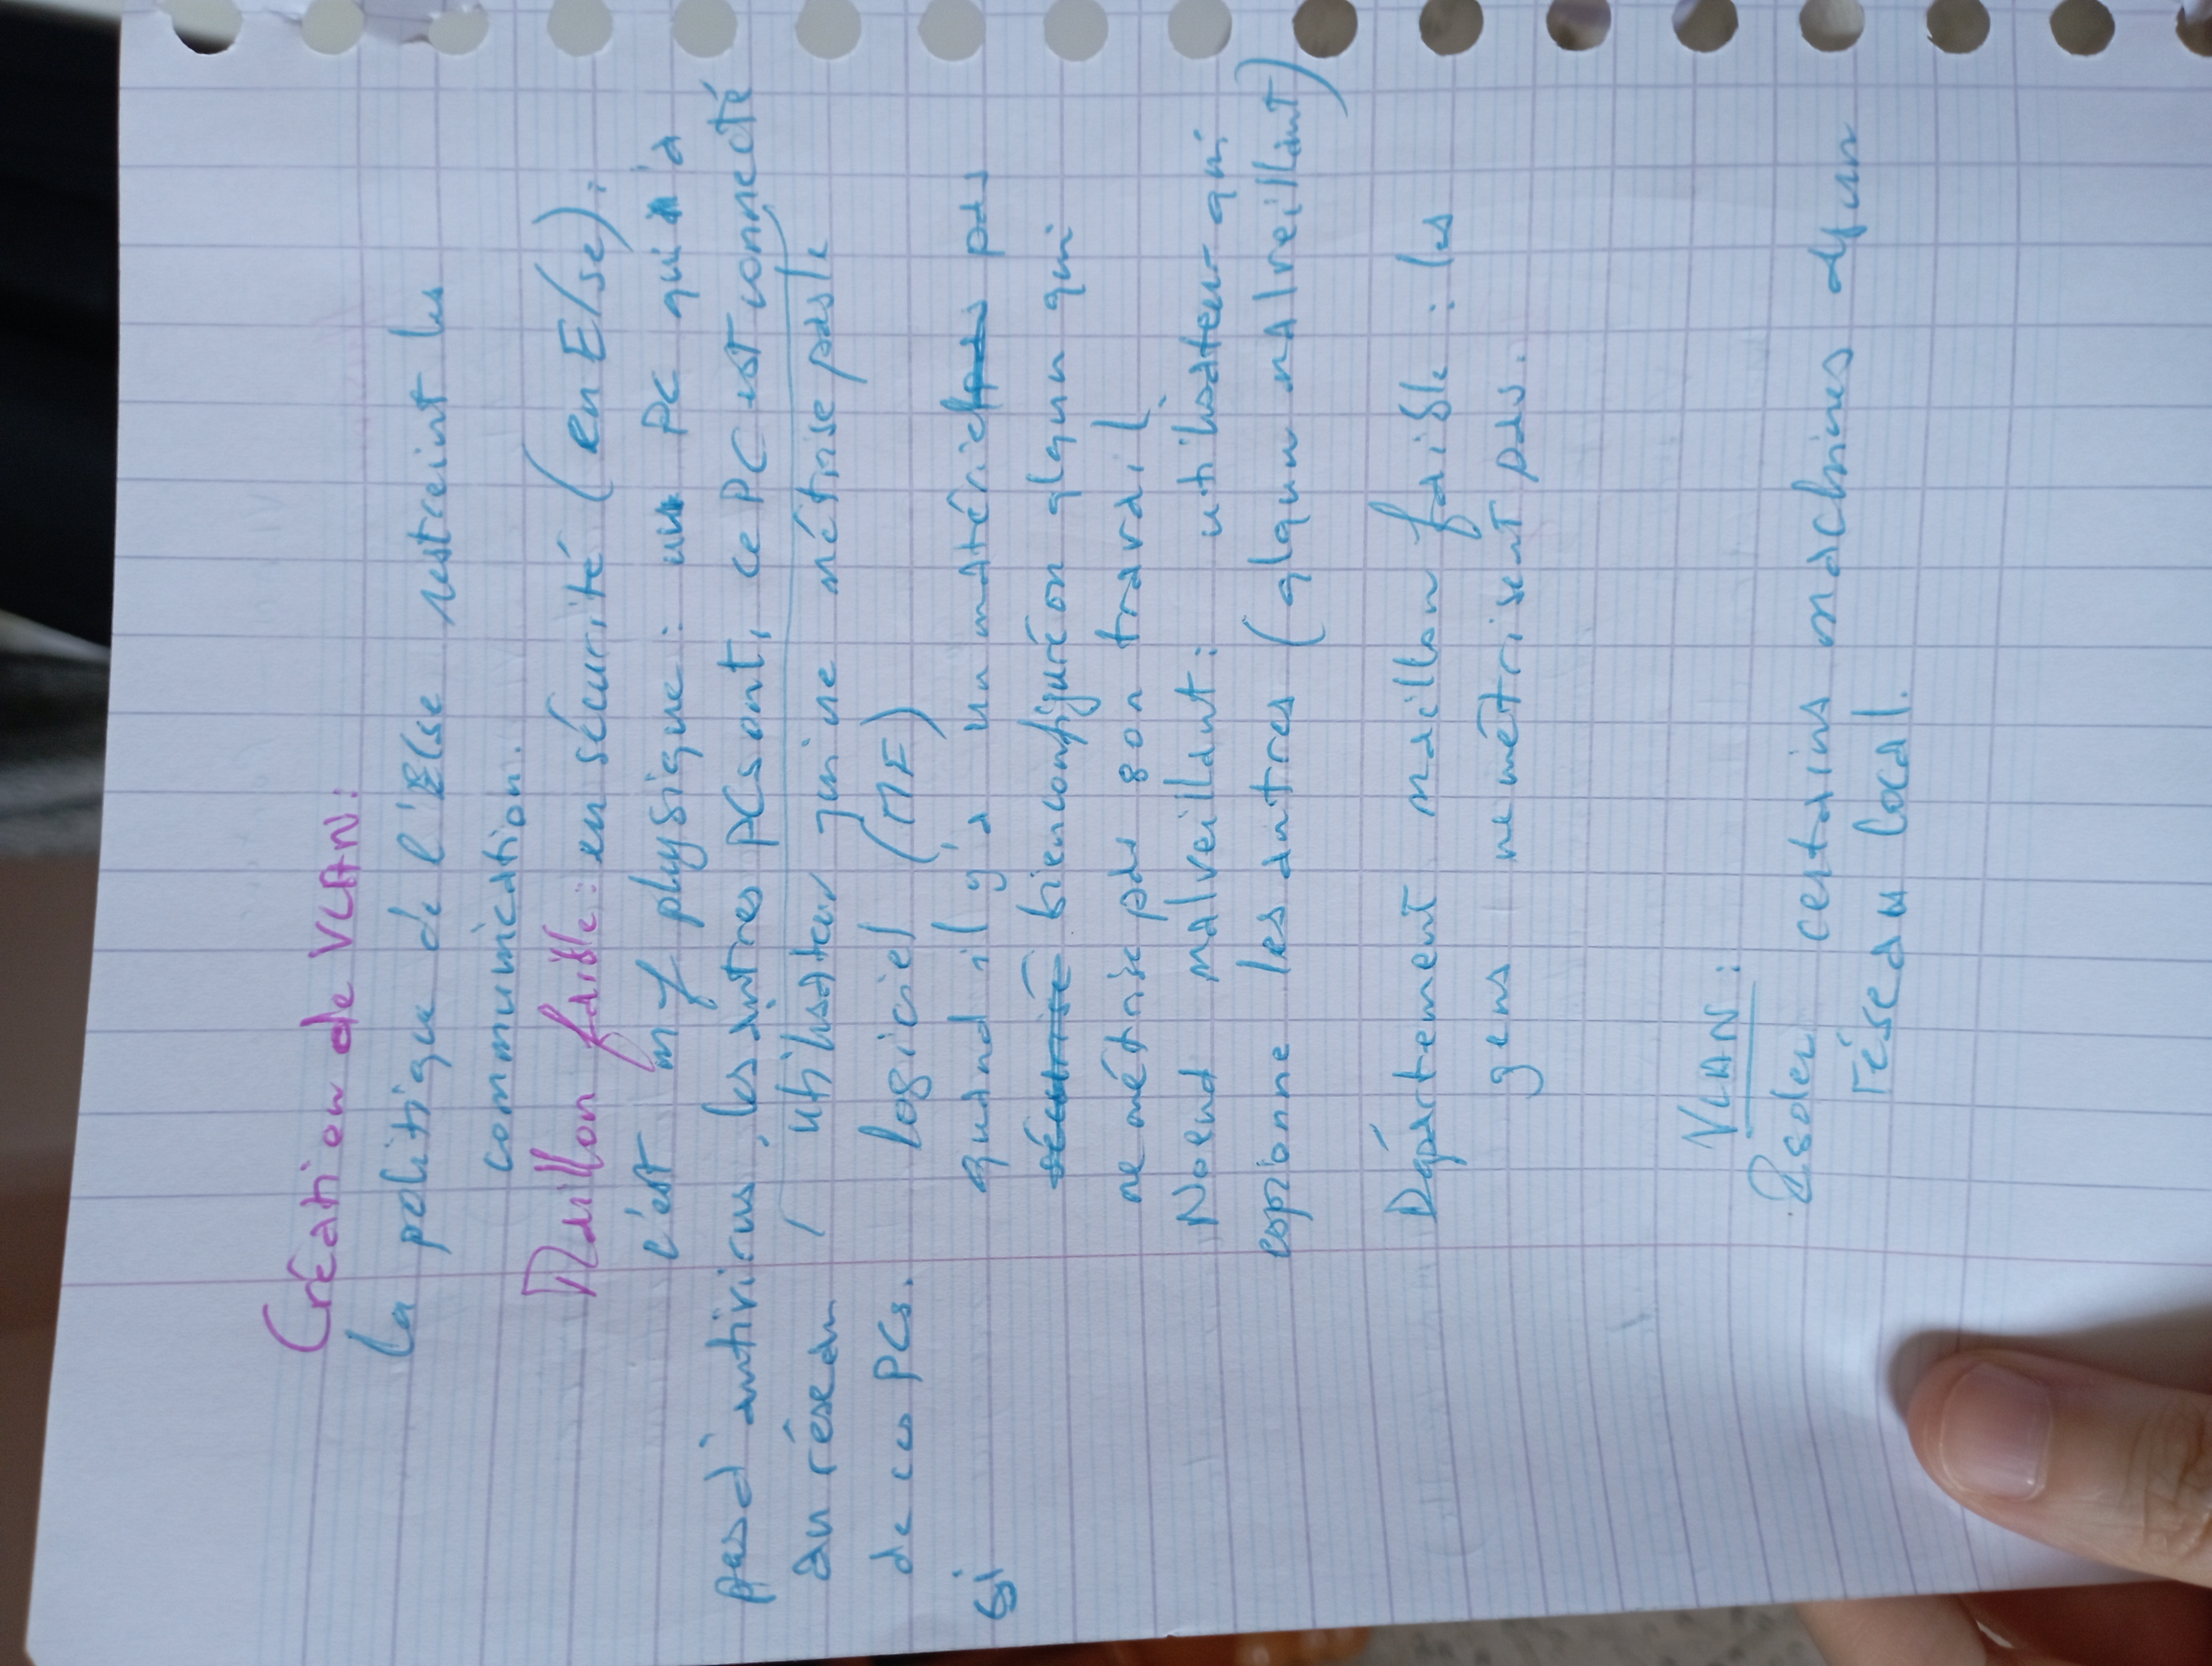 Création de VLAN:
la politique de l'E/se restreint les
communication.
Maillon faible: en sécurité (en E/se):
c'est m f physique: un PC qui n'a
pas d'antivirus, les autres PCs ont, ce PC est connecté
au réseau / utilisateur qui ne métrise pas le
de ces PCs. logiciel (MF)
si quand il y'a un matériel pas
sécurisé bien configuré ou qlqun qui
ne métrise pas son travail
Noeud malveillant: utilisateur qui
espionne les autres (qlqun malveillant)
Département maillon faible: les
gens ne métrisent pas.
VLAN:
Isoler certains machines d'un
réseau local.